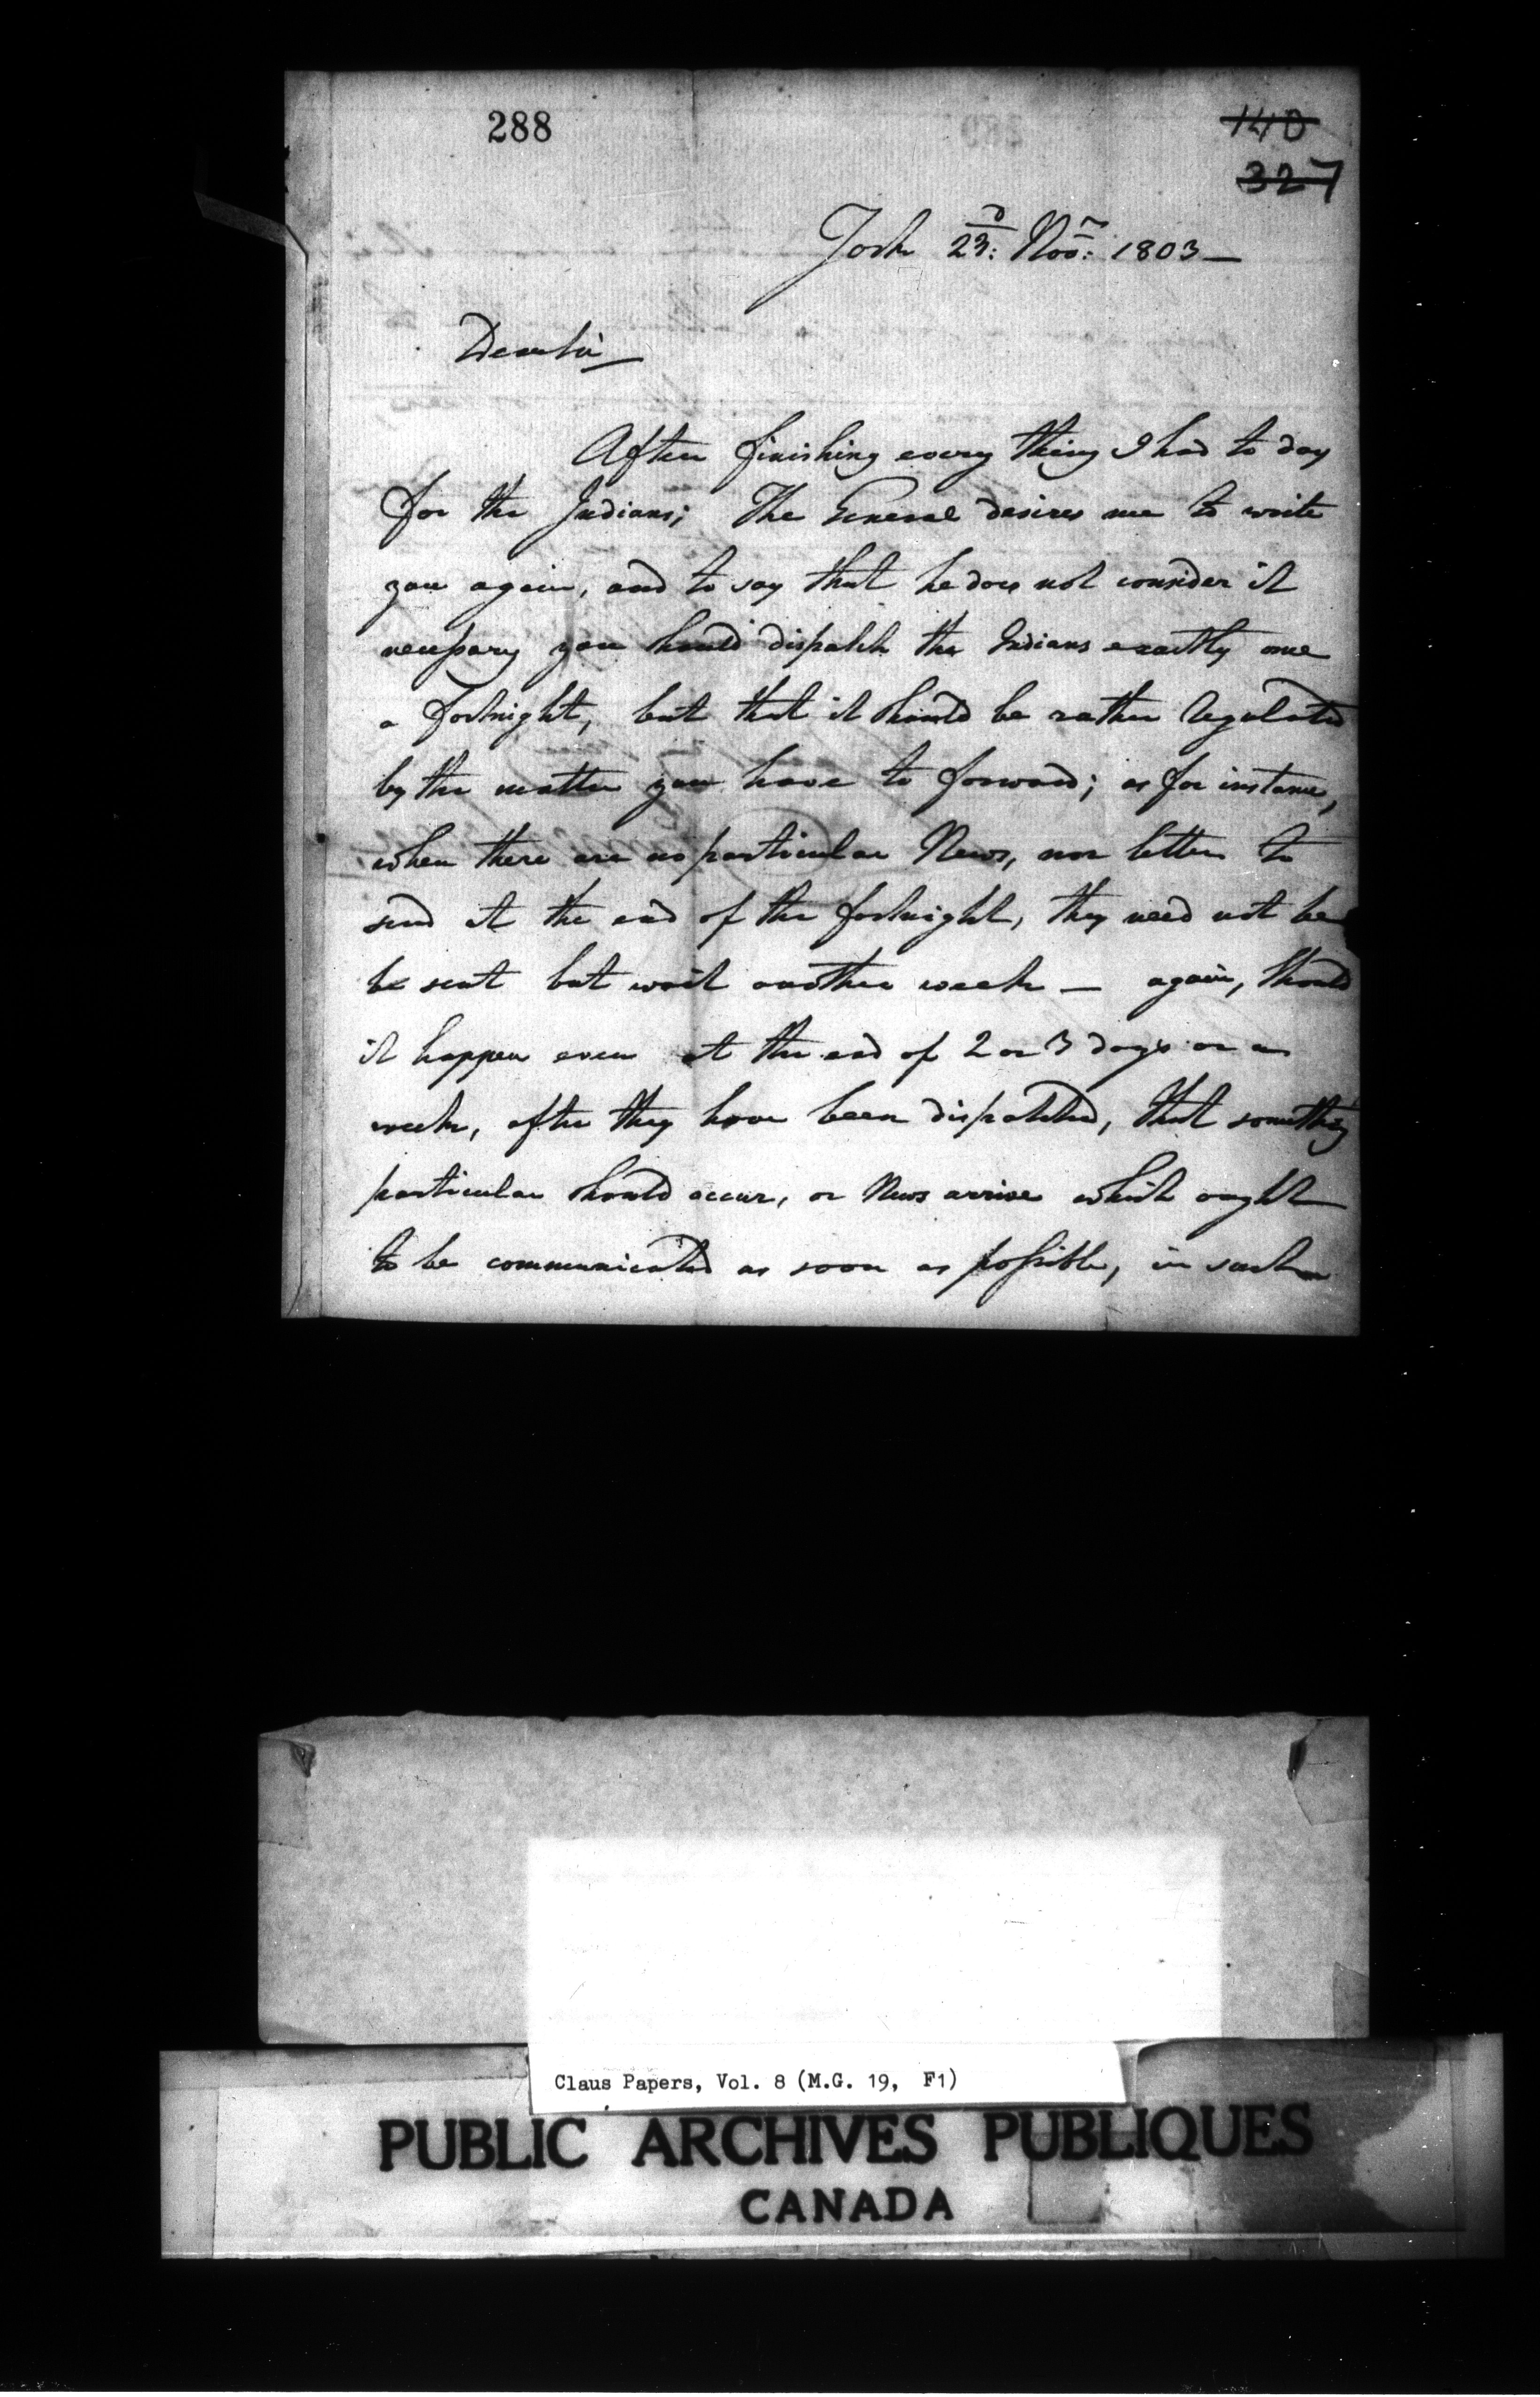 288
140
327
York 23.d Nov.r 1803 —
Dear Sir
After finishing every thing I had to day
for the Indians; The General desires me to write
you again, and to say that he does not consider it
necessary you should dispatch the Indians exactly once
a fortnight, but that it should be rather regulated
by the matter you have to forward; as for instance,
when there are no particular News, nor letters to
send at the end of the fortnight, they need not be
be sent but wait another week — again, should
it happen even at the end of 2 or 3 days or a
week, after they have been dispatched, that something
particular should occur, or News arrive which ought
to be communicated as soon as possible, in such
Claus Papers, Vol. 8 (M.G. 19, F1)
PUBLIC ARCHIVES PUBLIQUES
CANADA